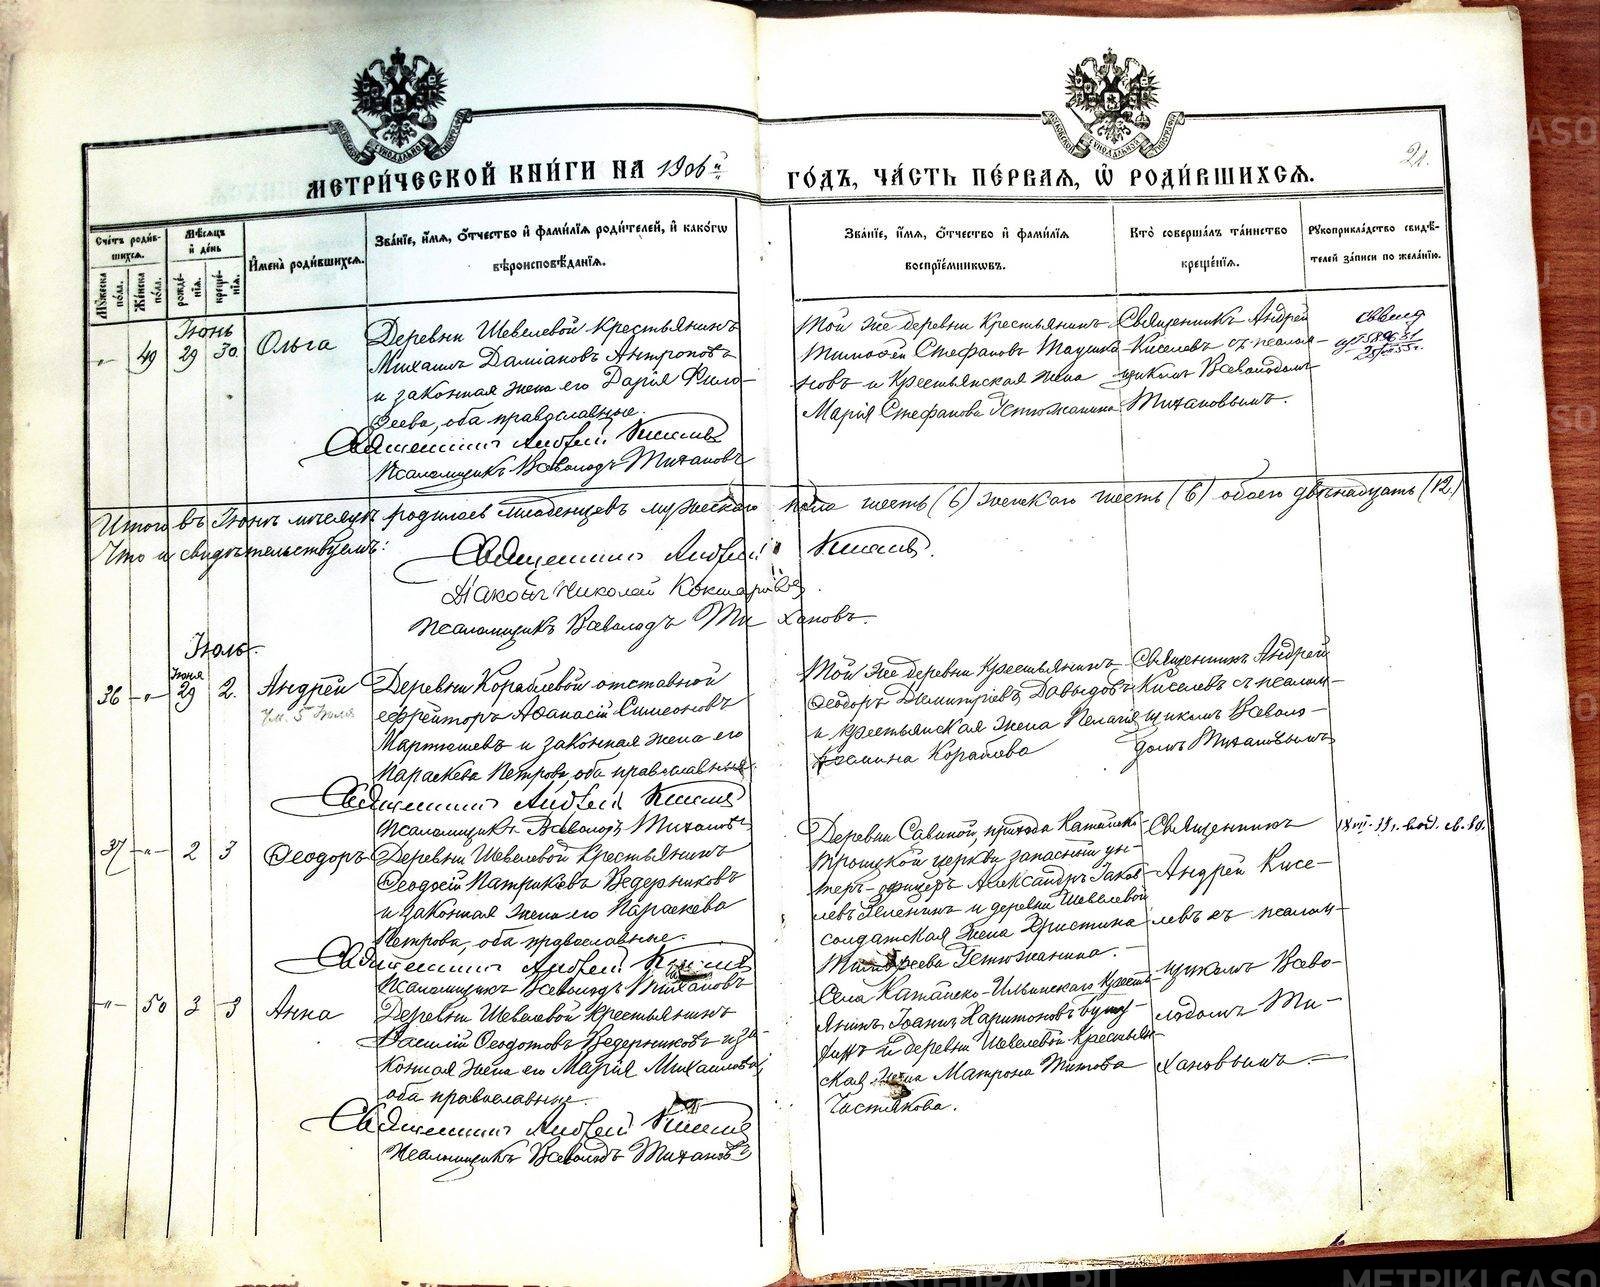 МЕТРИ́ЧЕСКОЙ КНИ́ГИ НА 1906й ГО́ДЪ, ЧА́СТЬ ПЕ́РВАЯ, Ѡ РОДИ́ВШИХСЯ.
21.
Сче́тъ роди́вшихся.
Му́жеска по́ла.
Же́нска по́ла.
Мѣ́сяцъ и де́нь
рожде́нія.
креще́нія.
Имена̀ роди́вшихся.
Зва́ніе, и́мя, о́тчество и фами́лія роди́телей, и како́гѡ
вѣроисповѣ́данія.
Зва́ніе, и́мя, о́тчество и фами́лія
воспріе́мниковъ.
Кто̀ соверша́лъ та́инство
креще́нія.
Рукоприкла́дство свидѣ́телей за́писи по жела́нію.
Іюнь
" 49 29 30. Ольга
Деревни Шевелевой крестьянинъ
Михаилъ Даміановъ Антроповъ
и законная жена его Дарія Фило-
феева, оба православные.
Священникъ Андрей Киселевъ
Псаломщикъ Всеволодъ Тихановъ
Той же деревни крестьянинъ
Тимофей Стефановъ
новъ и крестьянская жена
Марія Стефанова Устюжанина
Священникъ Андрей
Киселевъ съ псалом-
щикомъ Всеволодомъ
Тихановымъ.
Итого въ Іюнѣ мѣсяцѣ родилось младенцевъ мужескаго пола шесть (6) женскаго шесть (6) обоего двѣнадцать (12.)
Что и свидѣтельствуемъ:
Священникъ Андрей Киселевъ.
Діаконъ Николай Кокшаровъ
Псаломщикъ Всеволодъ Тихановъ.
Іюль.
Іюня
36 -"- 29 2. Андрей
ум. 5 Іюля
Деревни Кораблевой отставной
ефрейторъ Афанасій Симеоновъ
Мартюшевъ и законная жена его
Параскева Петрова, оба православные.
Священникъ Андрей Киселевъ
Псаломщикъ Всеволодъ Тихановъ
Той же деревни крестьянинъ
Ѳеодоръ Димитріевъ Давыдовъ
и крестьянская жена Пелагія
Косьмина Кораблева
Священникъ Андрей
Киселевъ съ псалом-
щикомъ Всеволо-
домъ Тихановымъ
37 -"- 2 3 Ѳеодоръ
Деревни Шевелевой крестьянинъ
Ѳеодосій Патрикіевъ Ведерниковъ
и законная жена его Параскева
Петрова, оба православные.
Священникъ Андрей Киселевъ
Псаломщикъ Всеволодъ Тихановъ
Деревни Савиной, прихода Катайско-
Троицкой церкви запасный ун-
теръ-офицеръ Александръ Іаков-
левъ Зеленинъ и деревни Шевелевой
солдатская жена Христина
Тимофеева Устюжанина.
Священникъ
Андрей Кисе-
левъ съ псалом-
щикомъ Всево-
лодомъ Ти-
хановымъ.
-"- 50 3 3 Анна
Деревни Шевелевой крестьянинъ
Василій Ѳеодотовъ Ведерниковъ и за-
конная жена его Марія Михаилова,
оба православные.
Священникъ Андрей Киселевъ
Псаломщикъ Всеволодъ Тихановъ
Села Катайско-Ильинскаго крестья-
янинъ Іоаннъ Харитоновъ
и деревни Шевелевой крестьян-
ская жена Матрона Титова
Чистякова.